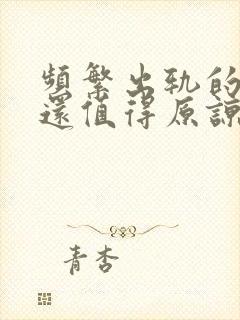 頻繁出軌的
還值得原諒
青杏